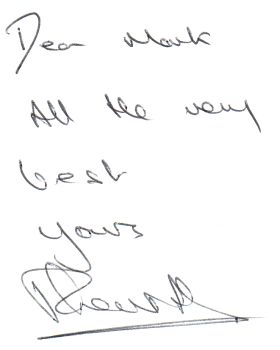 Dear Mark
All the very
best
yours